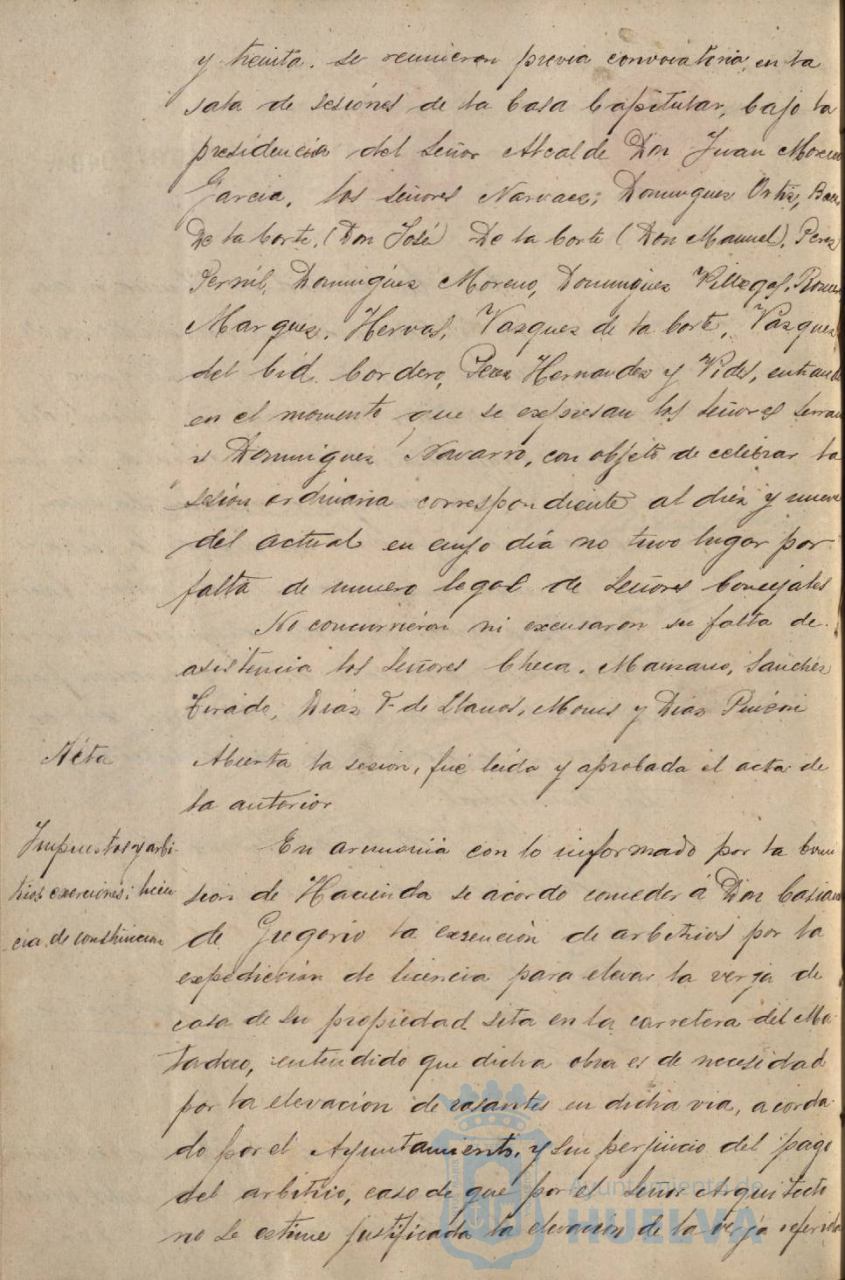 y treinta. se reunieron previa convocatoria, en la
sala de sesiones de la Casa Capitular, bajo la
presidencia del Señor Alcalde Don Juan Moreno
Garcia, los señores Narvaez, Dominguez Ortiz, 
De la Corte, (Don José) De la Corte (Don Manuel). Perez
Pernil, Dominguez Moreno, Dominguez Villegas,
Marquez, Hervas, Vazquez de la Corte, Vazquez
del Cid. Cordero, Perez Hernandez y Vides, entrando
en el momento que se expresan los señores Serrano
y Dominguez Navarro, con objeto de celebrar la
sesión ordinaria correspondiente al diez y nueve
del actual en cuyo día no tuvo lugar por
falta de numero legal de Señores Concejales
No concurrieron ni excusaron su falta de
asistencia los Señores Checa. Manzano, Sanchez
Tirado, Diaz F. de Llanos, y Diaz Pinzon
Acta
Abierta la sesion, fué leida y aprobada el acta de
la anterior
Impuestos y arbi-
trios exenciones; licen
cia de construccion
En armonia con lo informado por la Comi
sion de Hacienda se acordo conceder á Don Casiano
de Gregorio la exsención de arbitrios por la
expedición de licencia para elevar la verja de
casa de su propiedad sita en la carretera del Ma-
tadero, entendido que dicha obra es de necesidad
por la elevación de rasantes en dicha via, acorda-
do por el Ayuntamiento, y sin perjuicio del pago
del arbitrio, caso de que por el Señor Arquitecto
no se estime justificada la elevacion de la verja referida
Ayuntamiento de
HUELVA